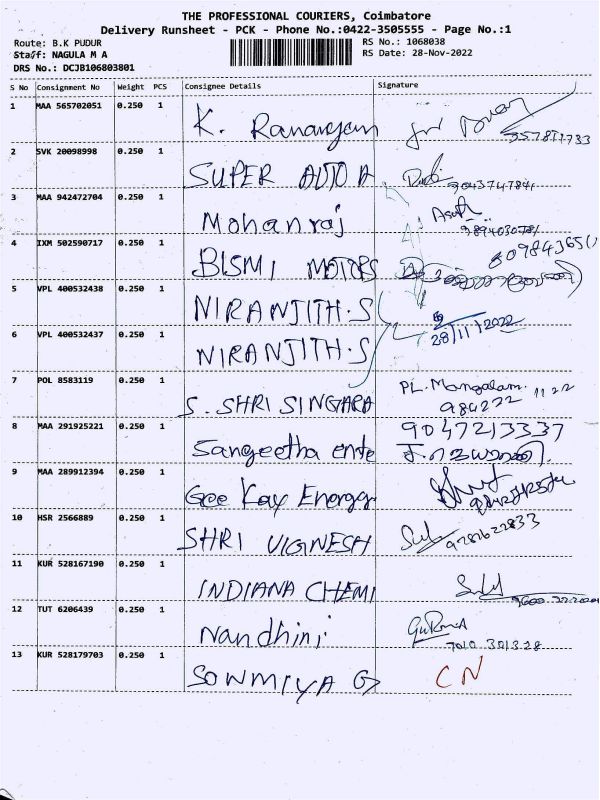 THE PROFESSIONAL COURIERS, Coimbatore
Delivery Runsheet - PCK - Phone No.:0422-3505555 - Page No.:1
Route: B.K PUDUR
Staff: NAGULA M A
DRS No.: DCJB106803801
RS No.: 1068038
RS Date: 28-Nov-2022
S No Consignment No Weight PCS Consignee Details Signature
1 MAA 565702051 0.250 1 K.
2 SVK 20098998 0.250 1 SUPER AUTO A 9043747841
3 MAA 942472704 0.250 1 Mohanraj
4 IXM 502590717 0.250 1 BISMI MOTORS
5 VPL 400532438 0.250 1 NIRANJITH.S
28/11/2022
6 VPL 400532437 0.250 1 NIRANJITH.S
7 POL 8583119 0.250 1 S. SHRI SINGARA PL. Mangalam. 11 22
984222
8 MAA 291925221 0.250 1 Sangeetha ente 9047213337
9 MAA 289912394 0.250 1 Gee Kay Energy
10 HSR 2566889 0.250 1 SHRI VIGNESH
11 KUR 528167190 0.250 1 INDIANA CHEMI
12 TUT 6206439 0.250 1 Nandhini
7010 301328
13 KUR 528179703 0.250 1 SOWMIYA G CN